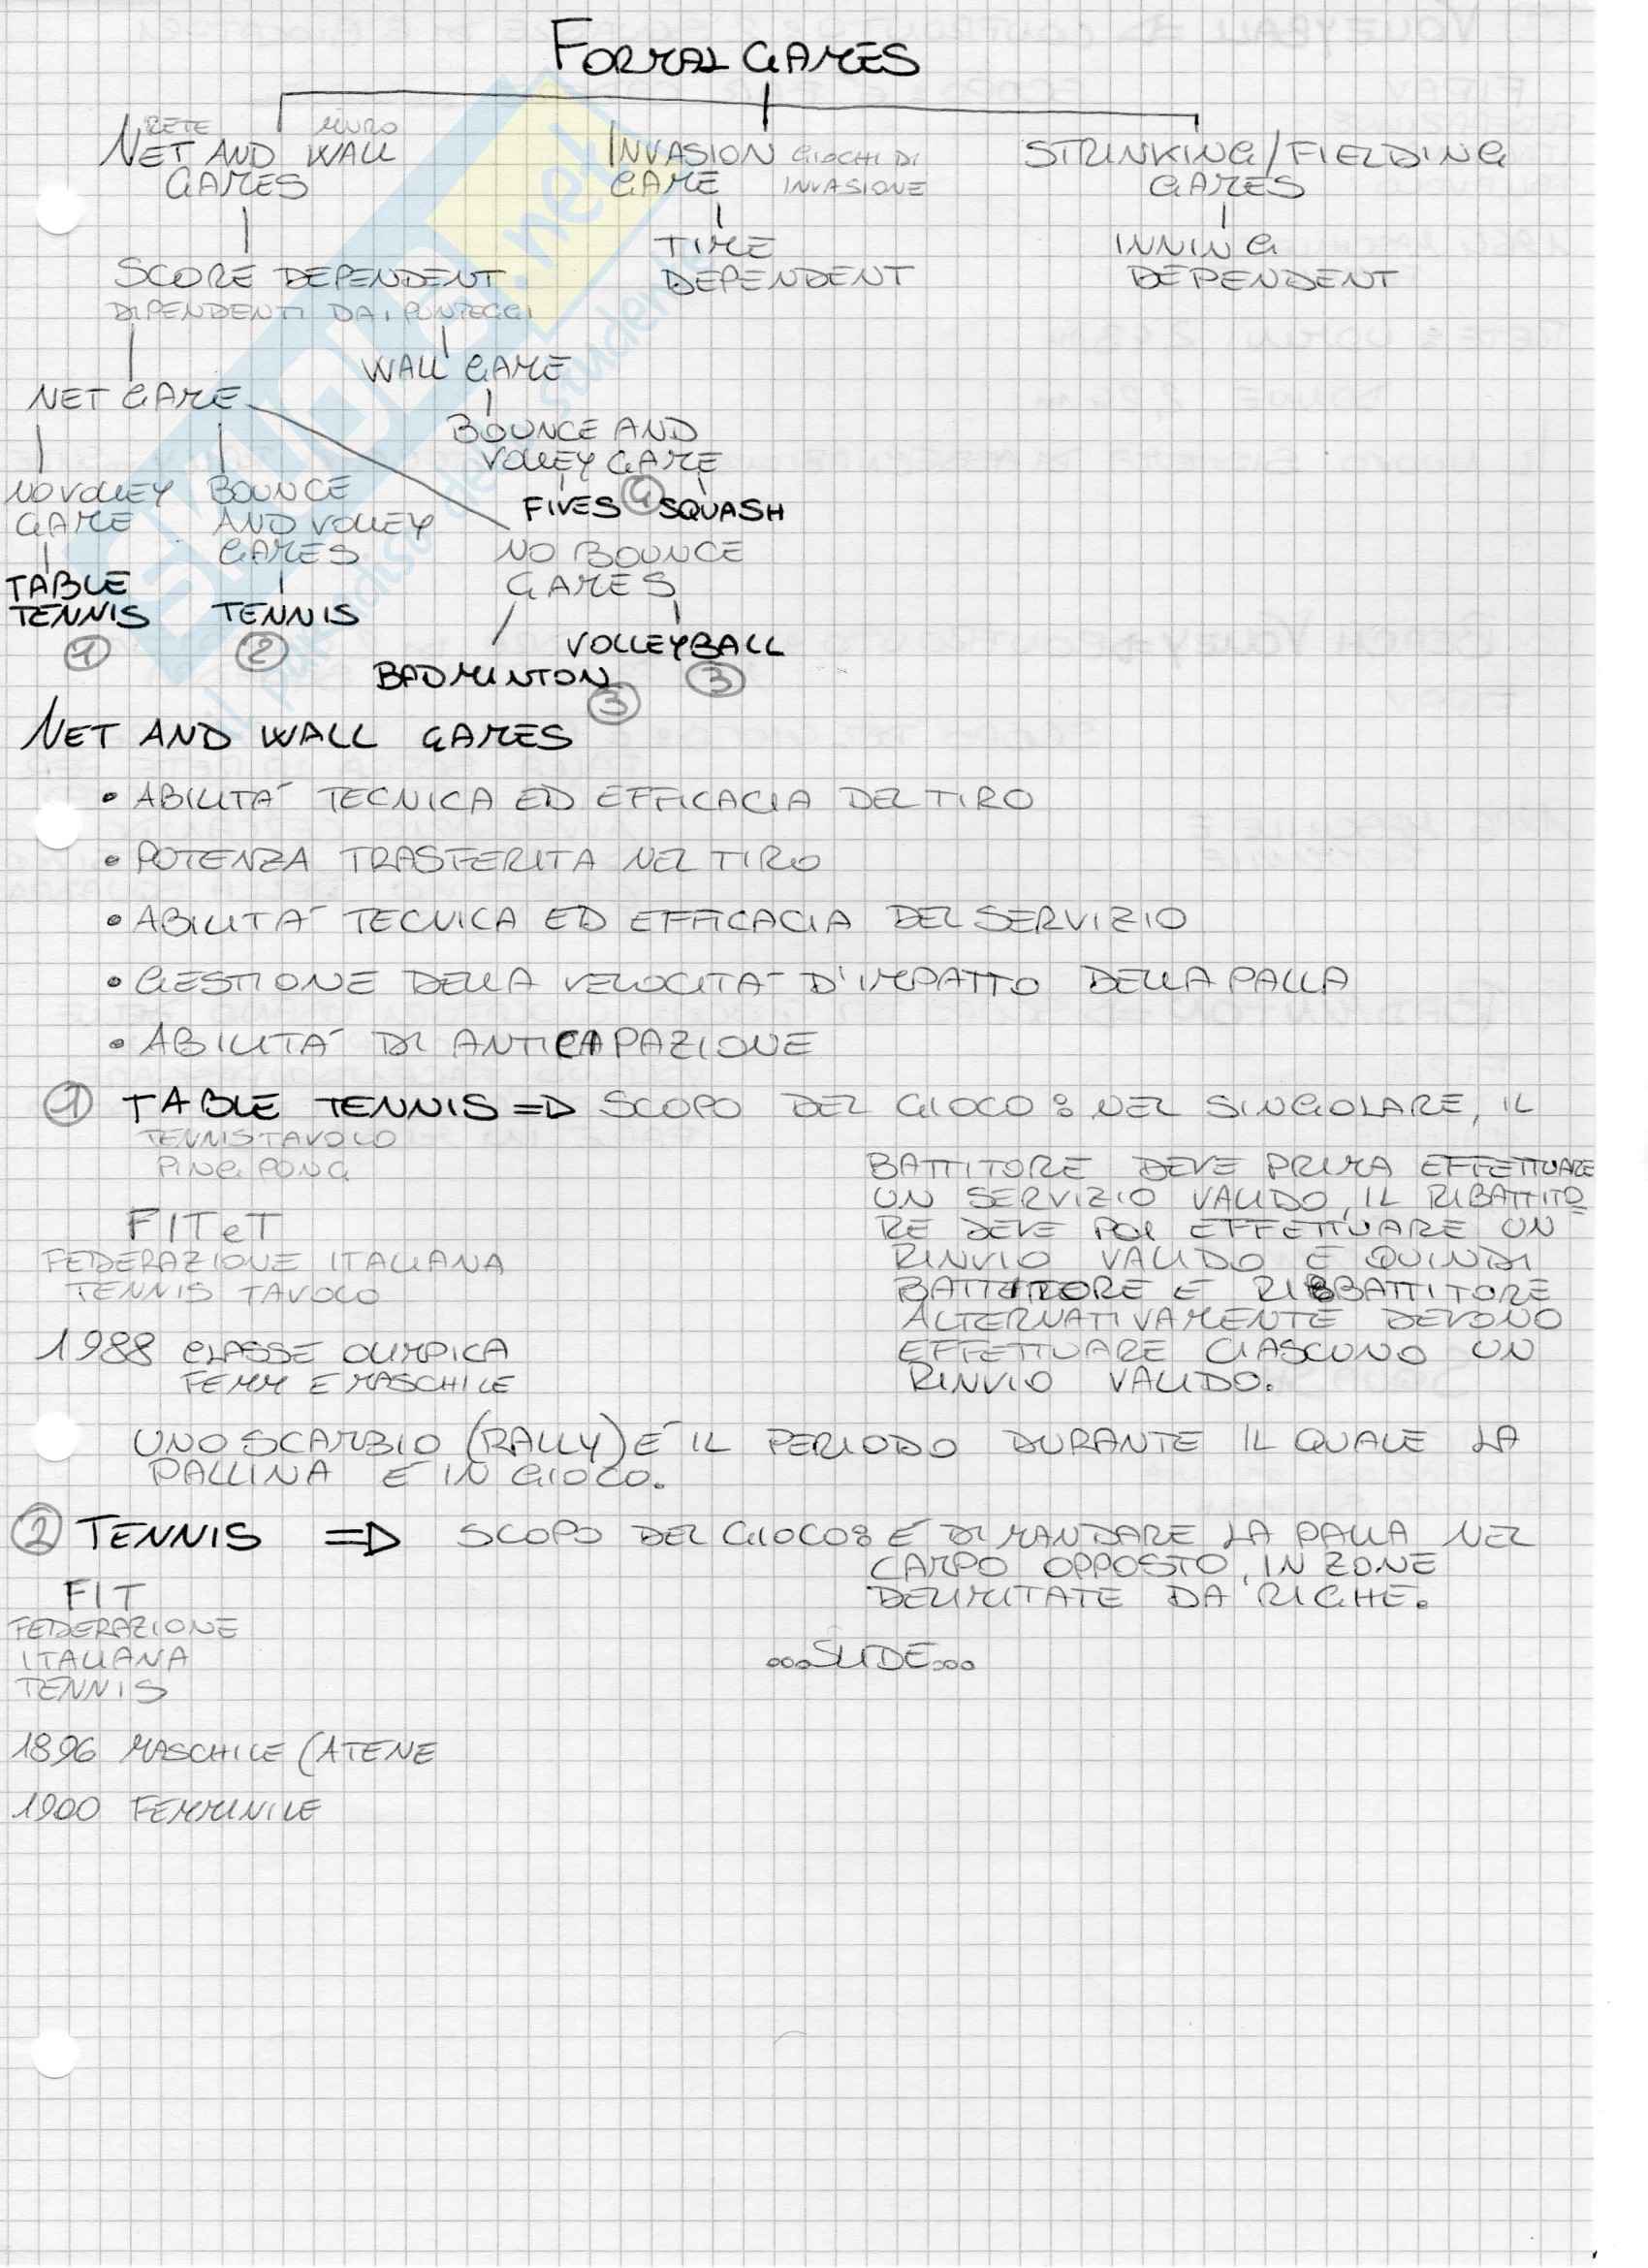 FORMAL GAMES
RETE MURO
NET AND WALL
GAMES
INVASION GIOCHI DI
GAME INVASIONE
STRINKING/FIELDING
GAMES
SCORE DEPENDENT
DIPENDENTI DAI PUNTEGGI
TIME
DEPENDENT
INNING
DEPENDENT
WALL GAME
NET GAME
BOUNCE AND
VOLLEY GAME
FIVES 4 SQUASH
NO VOLLEY
GAME
TABLE
TENNIS
1
BOUNCE
AND VOLLEY
GAMES
TENNIS
2
NO BOUNCE
GAMES
VOLLEYBALL
3
BADMINTON
3
NET AND WALL GAMES
• ABILITA' TECNICA ED EFFICACIA DEL TIRO
• POTENZA TRASFERITA NEL TIRO
• ABILITA' TECNICA ED EFFICACIA DEL SERVIZIO
• GESTIONE DELLA VELOCITA' D'IMPATTO DELLA PALLA
• ABILITA' DI ANTICAPAZIONE
1 TABLE TENNIS => SCOPO DEL GIOCO: NEL SINGOLARE, IL
TENNISTAVOLO
PING PONG
BATTITORE DEVE PRIMA EFFETTUARE
UN SERVIZIO VALIDO, IL RIBATTITO
RE DEVE POI EFFETTUARE UN
RINVIO VALIDO E QUINDI
BATTITORE E RIBBATTITORE
ALTERNATIVAMENTE DEVONO
EFFETTUARE CIASCUNO UN
RINVIO VALIDO.
FITeT
FEDERAZIONE ITALIANA
TENNIS TAVOLO
1988 CLASSE OLIMPICA
FEMM E MASCHILE
UNO SCAMBIO (RALLY) E' IL PERIODO DURANTE IL QUALE LA
PALLINA E' IN GIOCO.
2 TENNIS => SCOPO DEL GIOCO: E' DI MANDARE LA PALLA NEL
CAMPO OPPOSTO, IN ZONE
DELIMITATE DA RIGHE.
FIT
FEDERAZIONE
ITALIANA
TENNIS
...SLIDE...
1896 MASCHILE (ATENE
1900 FEMMINILE